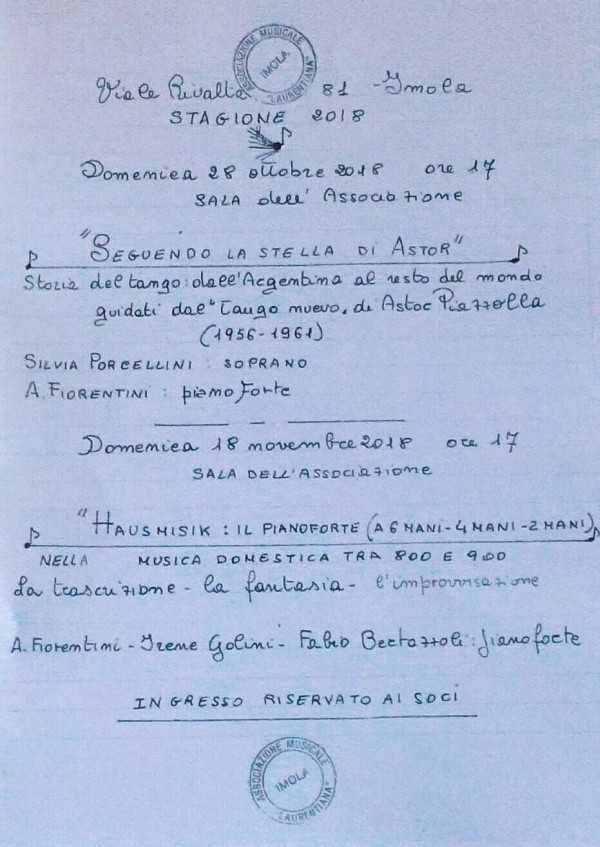 ASSOCIAZIONE MUSICALE "LAURENTIANA"
IMOLA
Viale Rivalta 81 - Imola
STAGIONE 2018
Domenica 28 ottobre 2018 ore 17
SALA dell' Associazione
"SEGUENDO LA STELLA DI ASTOR"
Storia del tango: dall'Argentina al resto del mondo
guidati dal "Tango nuevo" di Astor Piazzolla
(1956-1961)
SILVIA PORCELLINI : SOPRANO
A. FIORENTINI : pianoforte
Domenica 18 novembre 2018 ore 17
SALA DELL'ASSOCIAZIONE
"HAUSMISIK : IL PIANOFORTE (A 6 MANI - 4 MANI - 2 MANI)
NELLA MUSICA DOMESTICA TRA 800 E 900
La trascrizione - la fantasia - l'improvvisazione
A. Fiorentini - Irene Golini - Fabio Bertazzoli : pianoforte
INGRESSO RISERVATO AI SOCI
ASSOCIAZIONE MUSICALE "LAURENTIANA"
IMOLA